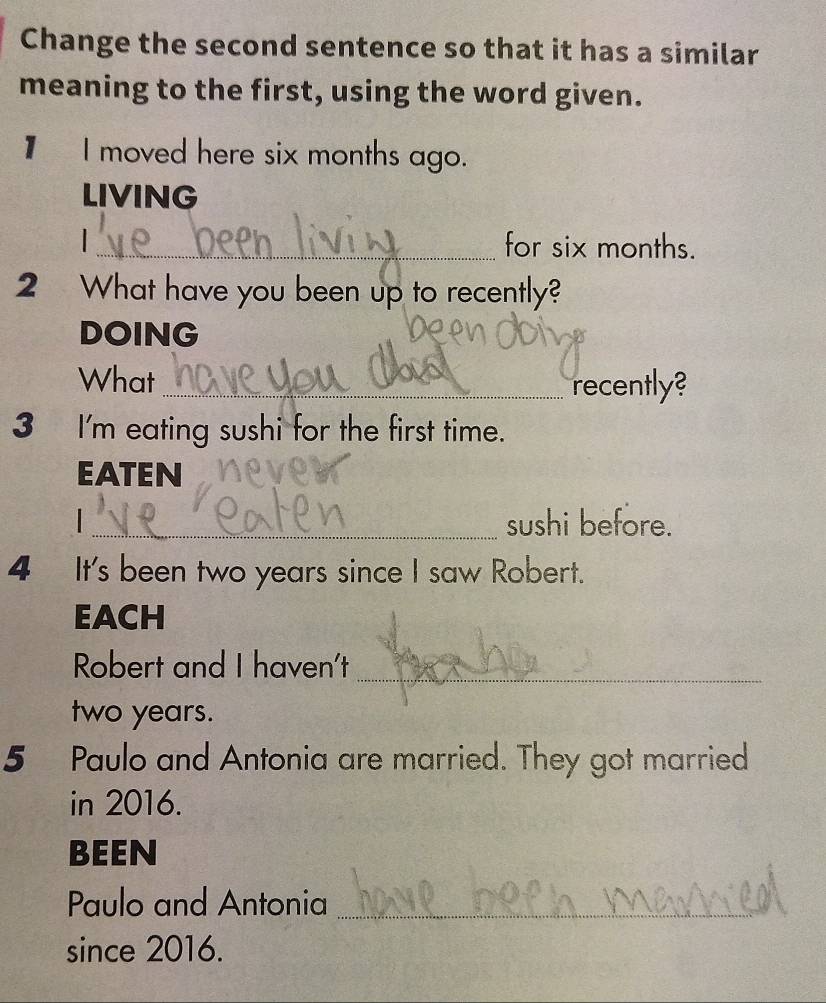 Change the second sentence so that it has a similar
meaning to the first, using the word given.
1 I moved here six months ago.
LIVING
I 've been living for six months.
2 What have you been up to recently?
DOING
been doing
What have you recently?
3 I'm eating sushi for the first time.
EATEN never
I 've eaten sushi before.
4 It's been two years since I saw Robert.
EACH
Robert and I haven't
two years.
5 Paulo and Antonia are married. They got married
in 2016.
BEEN
Paulo and Antonia have been married
since 2016.